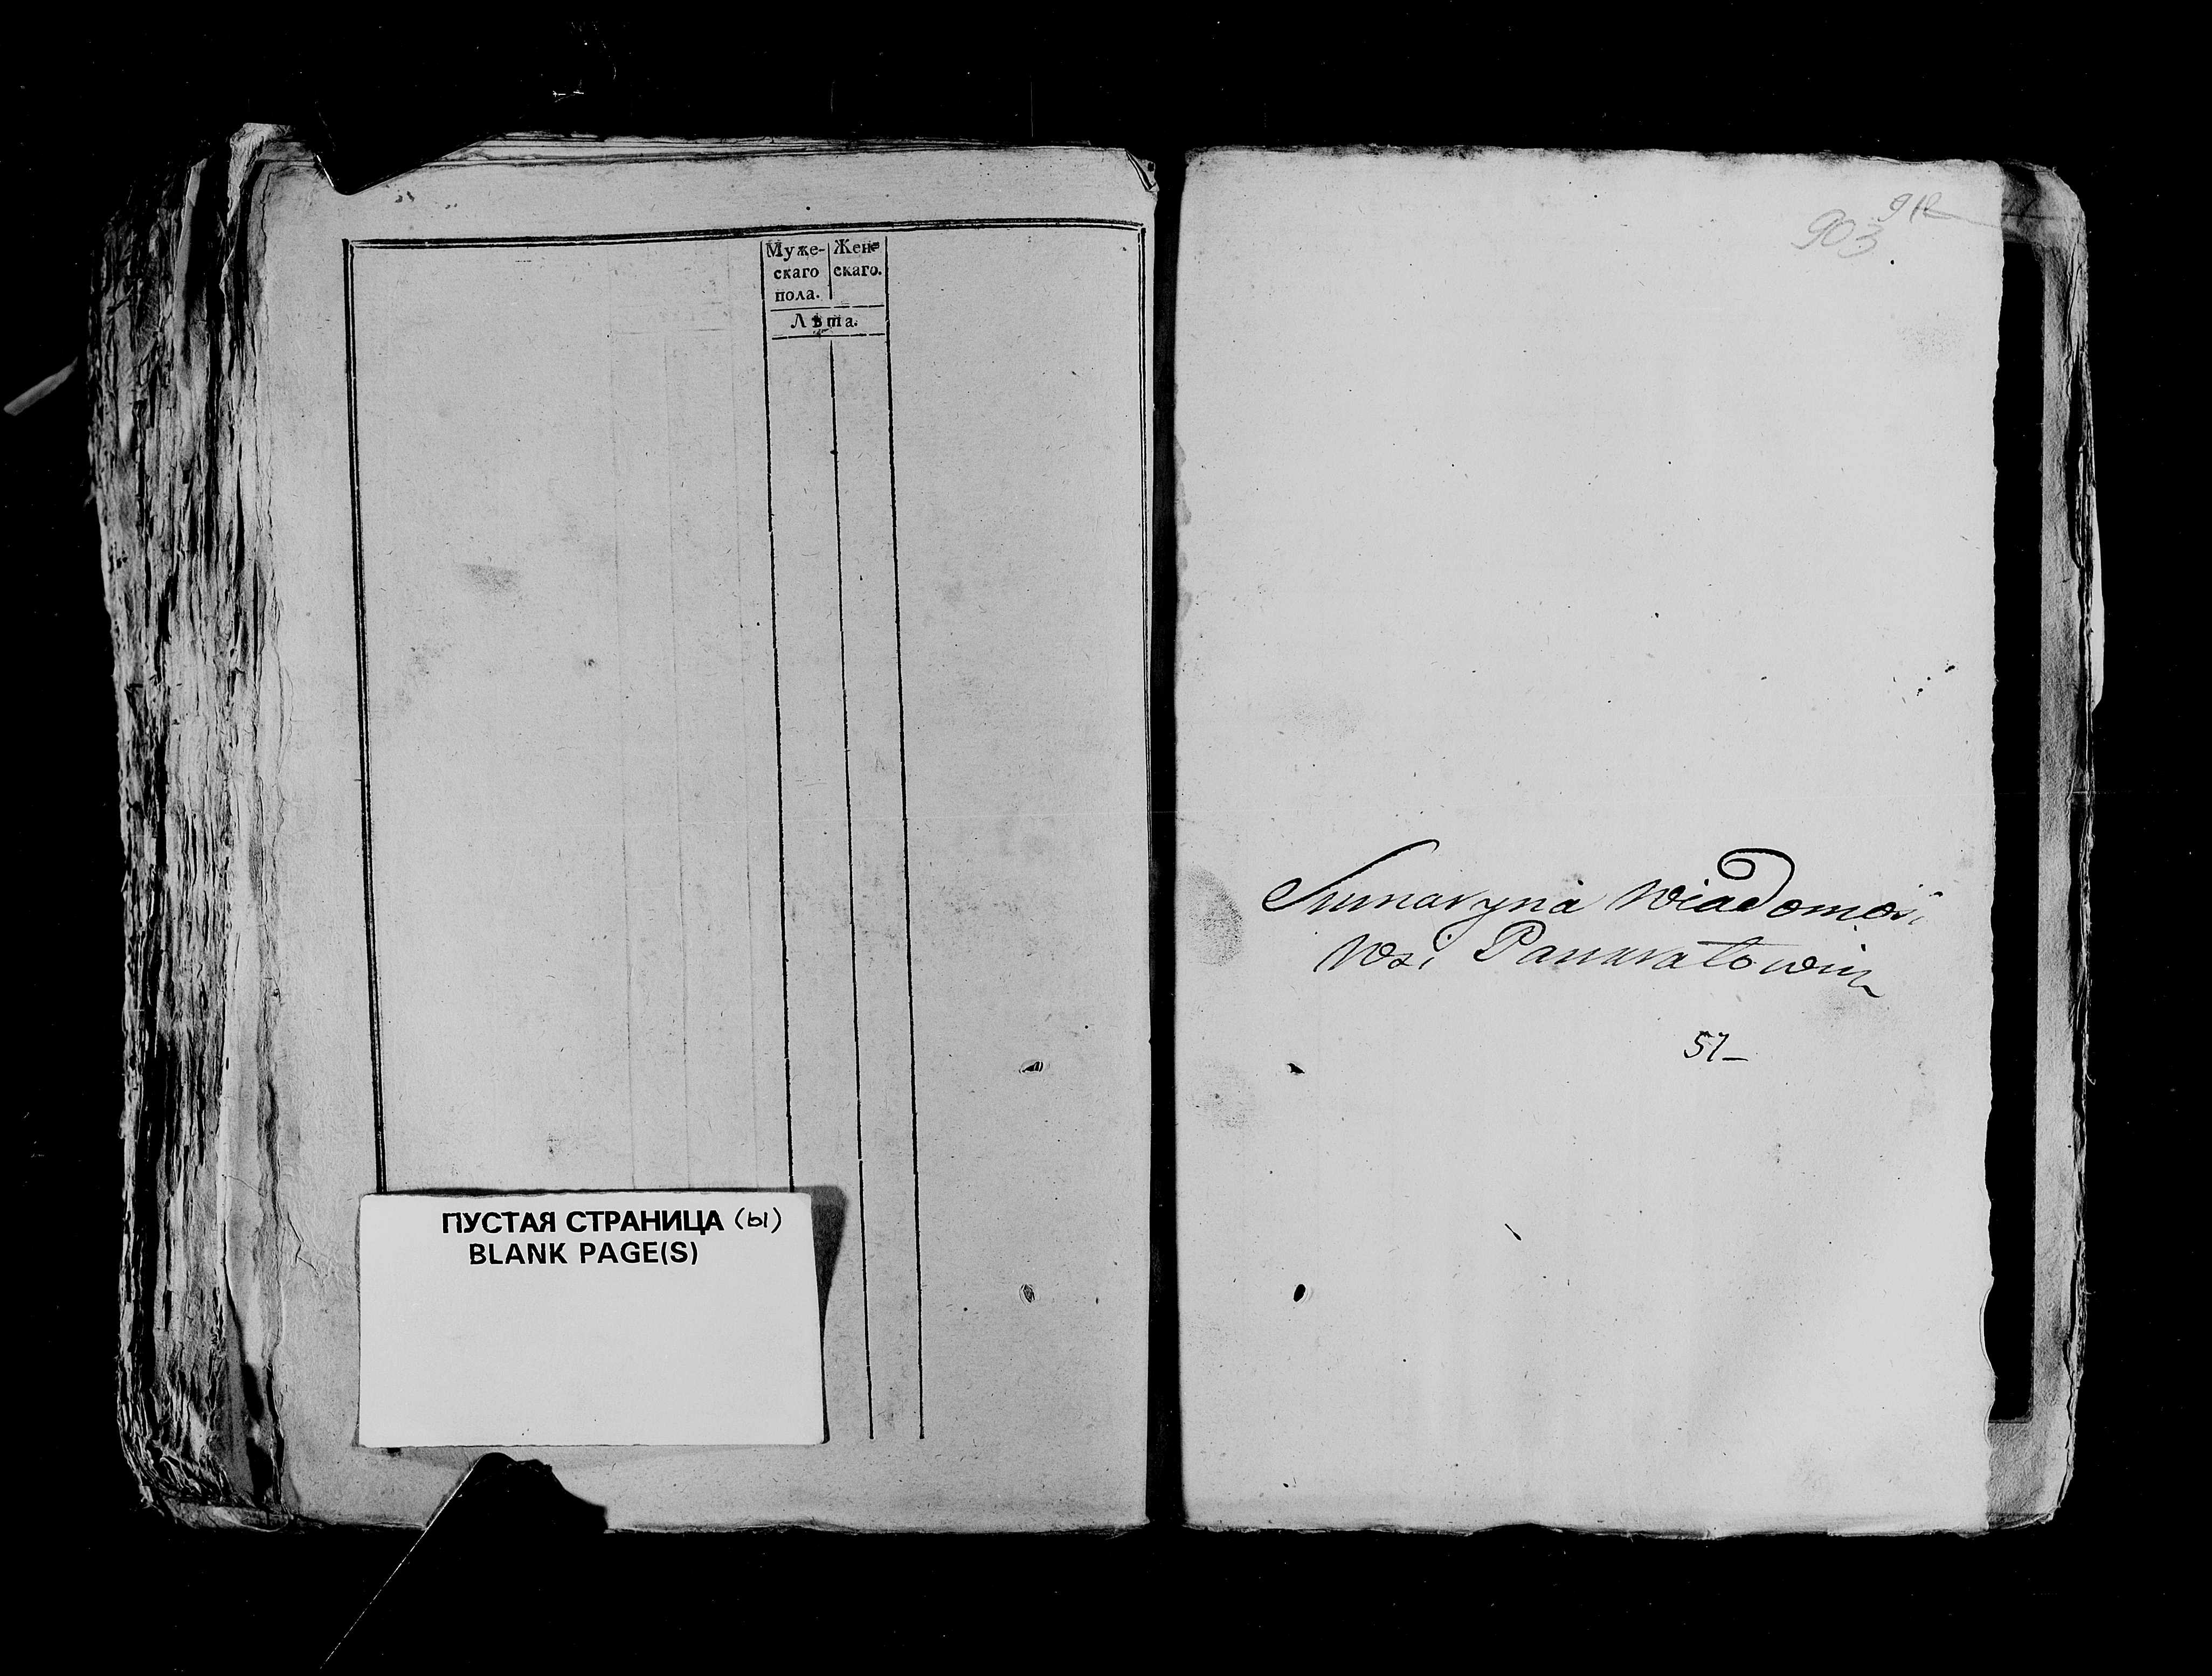 Муже-
скаго
пола.
Жен-
скаго.
Лѣта.
ПУСТАЯ СТРАНИЦА (ы)
BLANK PAGE(S)
912
903
Sumaryna Wiadomość
Wsi
57